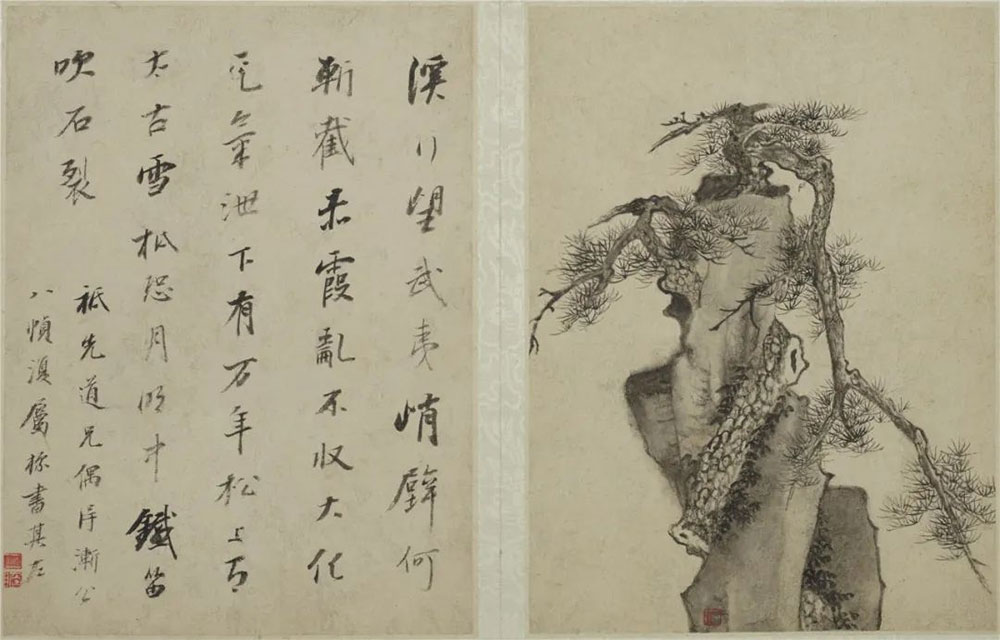 溪行望武夷峭壁何
斬截赤霞亂不收大化
元氣泄下有万年松上有
太古雪秪恐月明中鐵笛
吹石裂
祗先道兄偶得漸公
八幀屬書其左